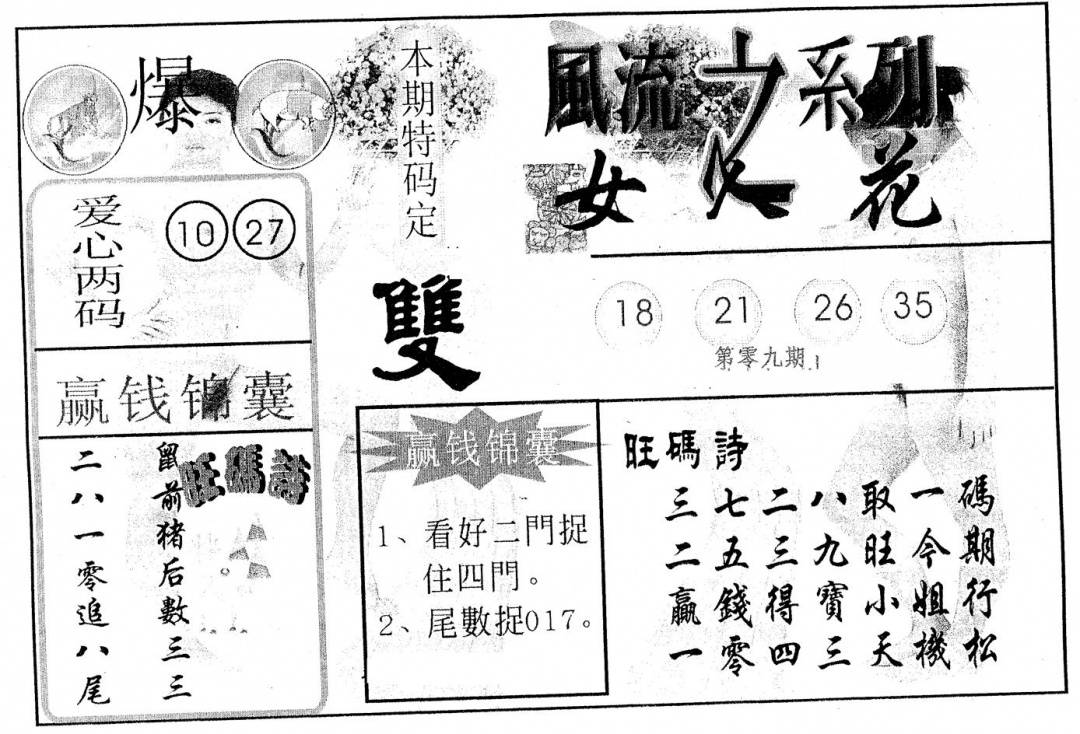 爆
本期特码定
雙
風流之系列
女人花
爱心两码
10 27
18 21 26 35
第零九期
赢钱锦囊
旺碼詩
鼠前猪后數三三
二八一零追八尾
赢钱锦囊
1、看好二門捉
住四門。
2、尾數捉017。
旺碼詩
三七二八取一碼
二五三九旺今期
贏錢得寶小姐行
一零四三天機松